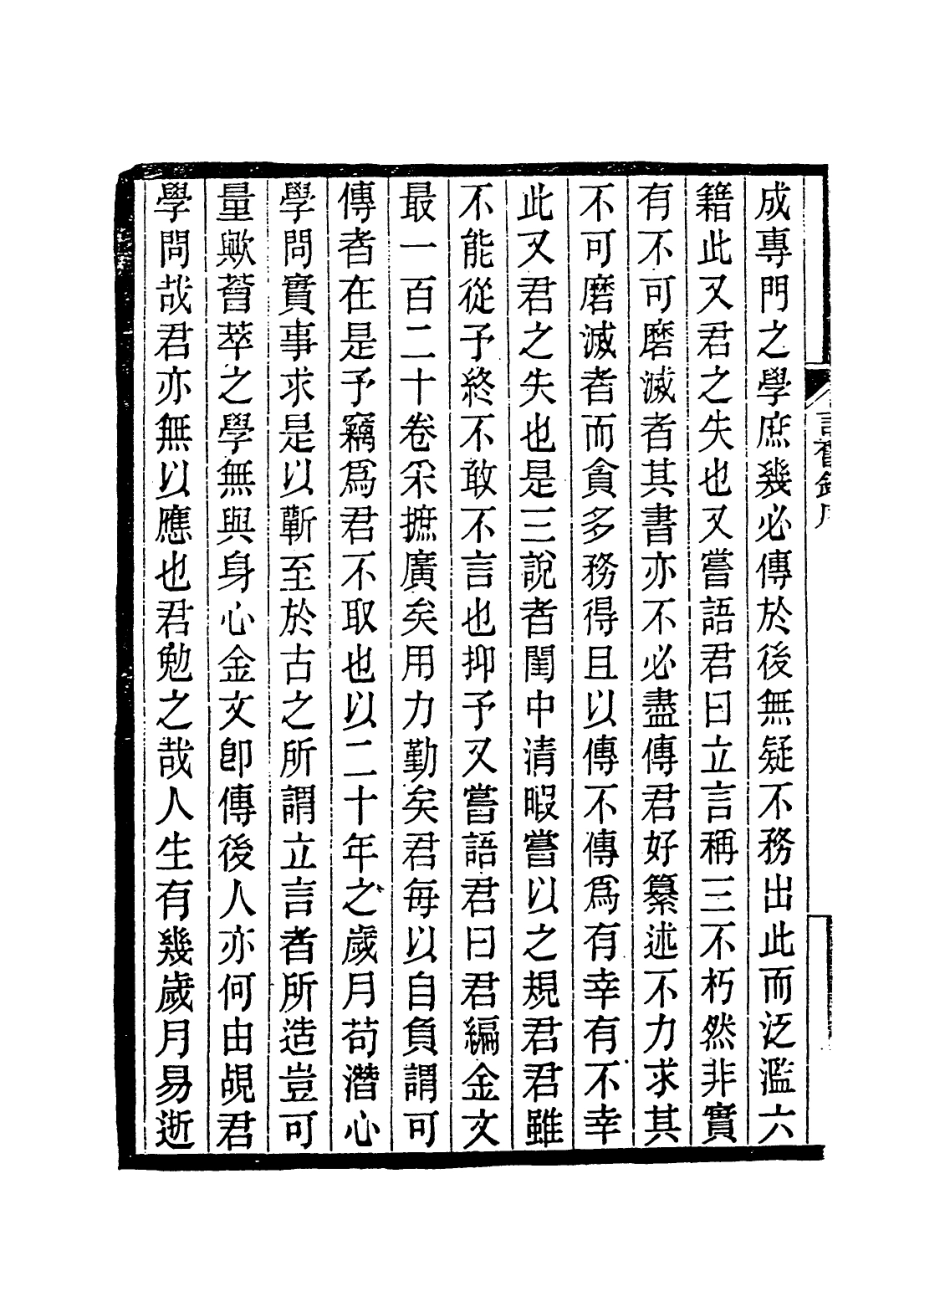 成專門之學庶幾必傳於後無疑不務出此而泛濫六
籍此又君之失也又嘗語君曰立言稱三不朽然非實
有不可磨滅者其書亦不必盡傳君好纂述不力求其
不可磨滅者而貪多務得且以傳不傳爲有幸有不幸
此又君之失也是三說者閨中清暇嘗以之規君君雖
不能從予終不敢不言也抑予又嘗語君曰君編金文
最一百二十卷采摭廣矣用力勤矣君每以自負謂可
傳者在是予竊爲君不取也以二十年之歲月苟潛心
學問實事求是以蘄至於古之所謂立言者所造豈可
量歟薈萃之學無與身心金文卽傳後人亦何由覘君
學問哉君亦無以應也君勉之哉人生有幾歲月易逝